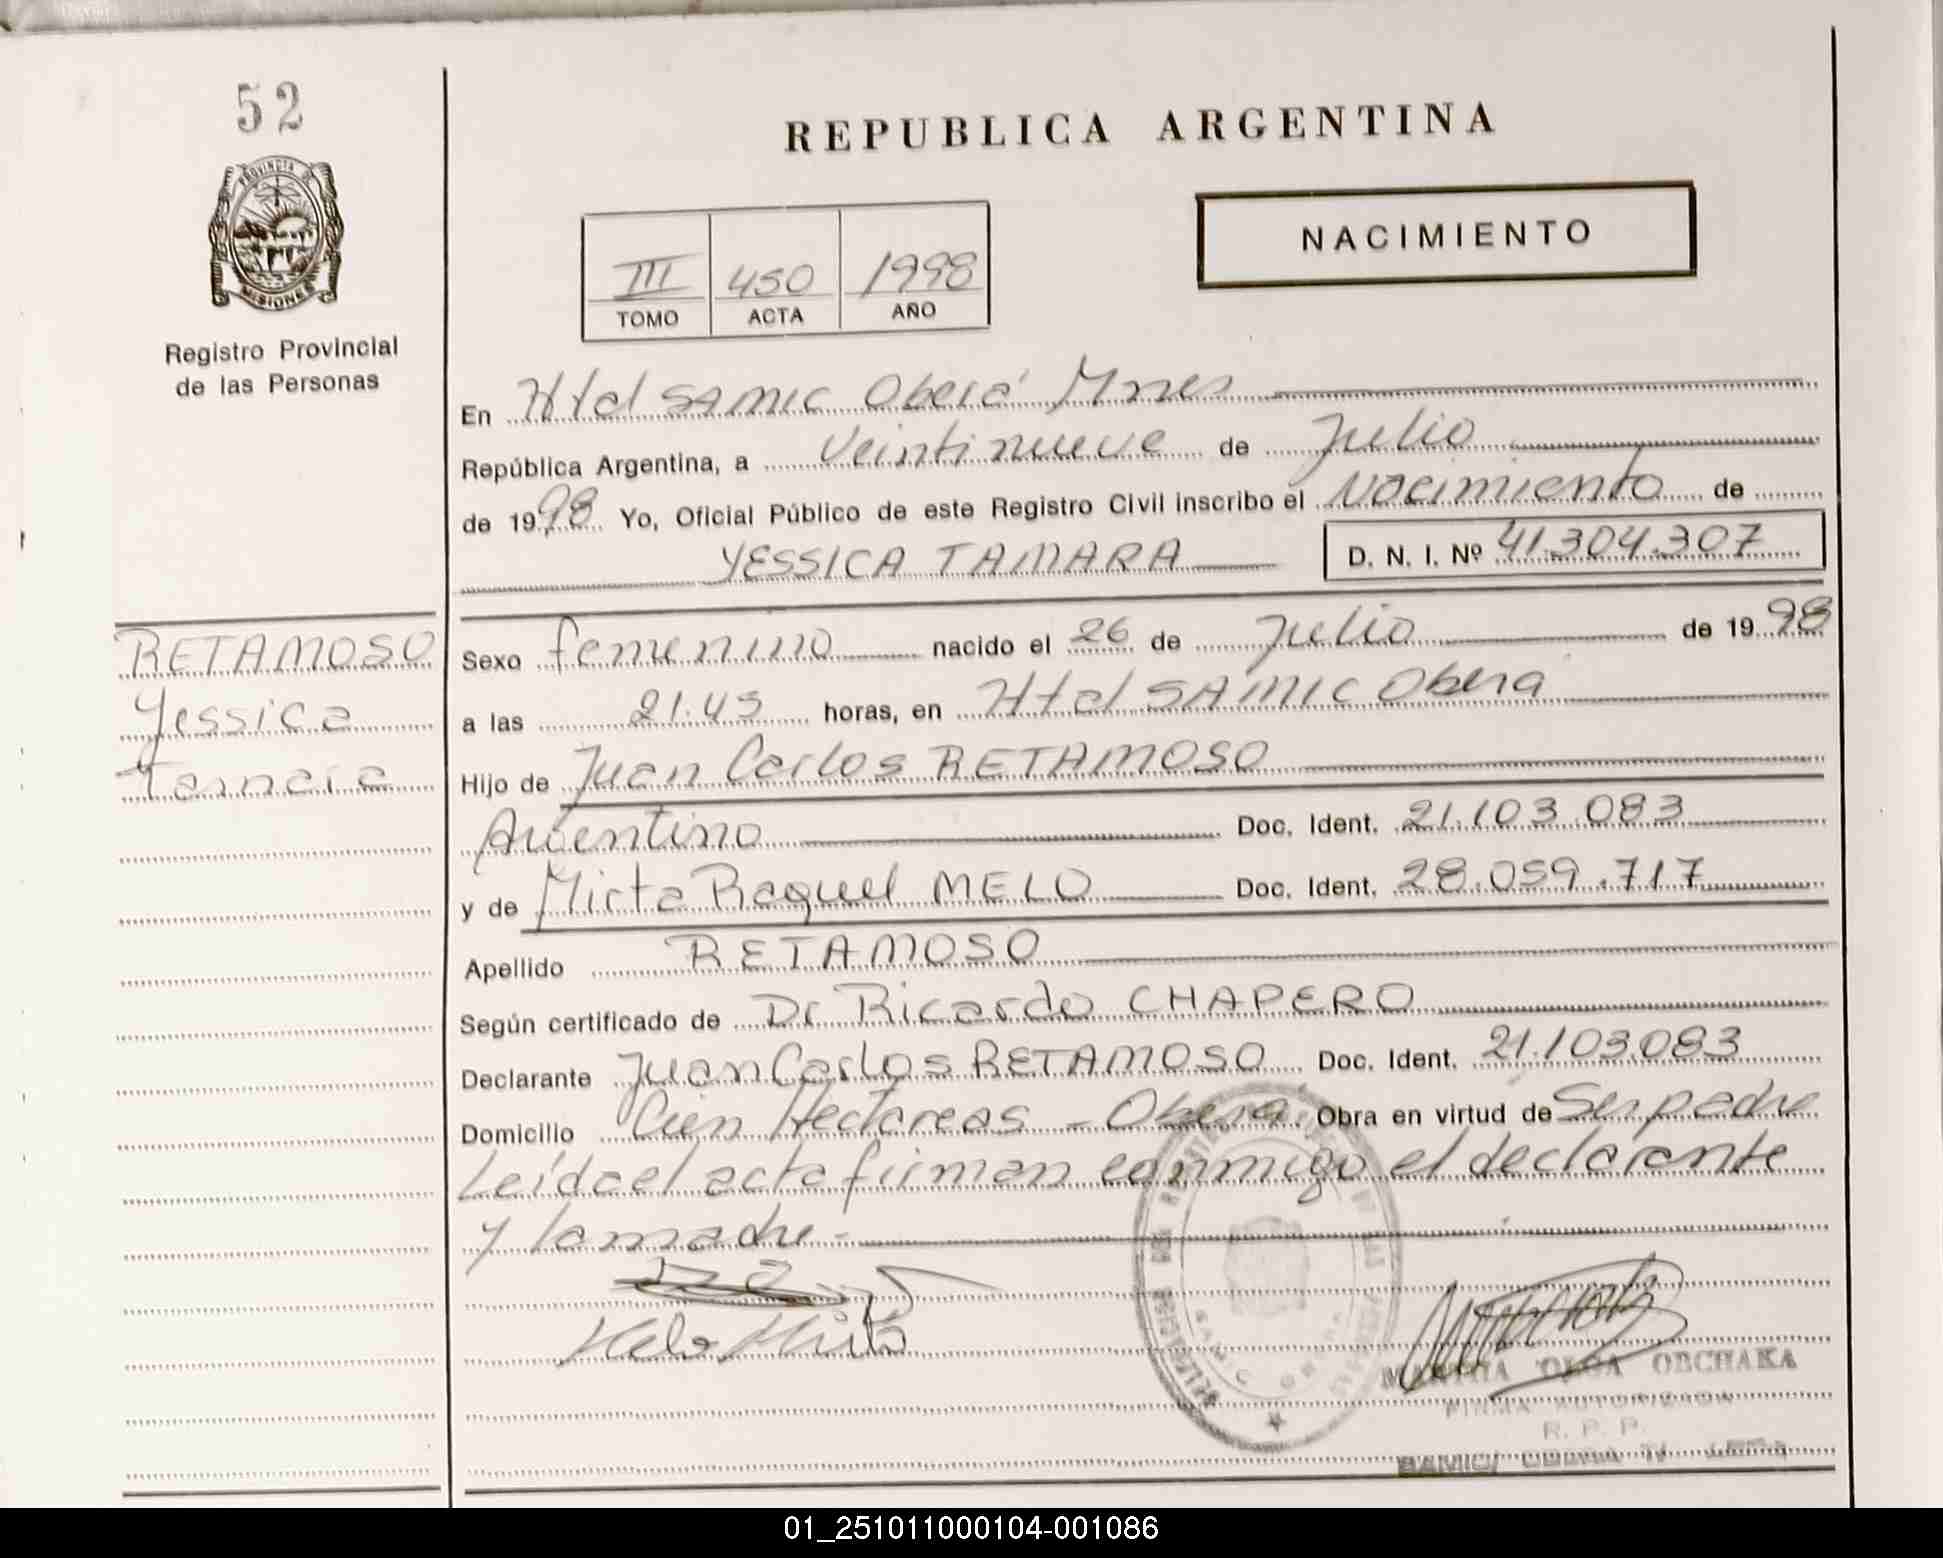 52
REPUBLICA ARGENTINA
PROVINCIA DE
MISIONES
NACIMIENTO
III 450 1998
TOMO ACTA AÑO
Registro Provincial
de las Personas
En Htal SAMIC Oberá Mnes
República Argentina, a Veintinueve de Julio
de 1998 Yo, Oficial Público de este Registro Civil inscribo el Nacimiento de
YESSICA TAMARA D. N. I. Nº 41.304.307
RETAMOSO
Yessica
Tamara
Sexo femenino nacido el 26 de Julio de 1998
a las 21.45 horas, en Htal SAMIC Obera
Hijo de Juan Carlos RETAMOSO
Argentino Doc. Ident. 21.103.083
y de Mirta Raquel MELO Doc. Ident. 28.059.717
Apellido RETAMOSO
Según certificado de Dr Ricardo CHAPERO
Declarante Juan Carlos RETAMOSO Doc. Ident. 21.103.083
Domicilio Cien Hectareas - Obera Obra en virtud de Ser padre
Leída el acta firman conmigo el declarante
y la madre.-
Melo Mirta
OLGA OBCHAKA
FIRMA AUTORIZADA
R. P. P.
SAMIC OBERA
01_251011000104-001086